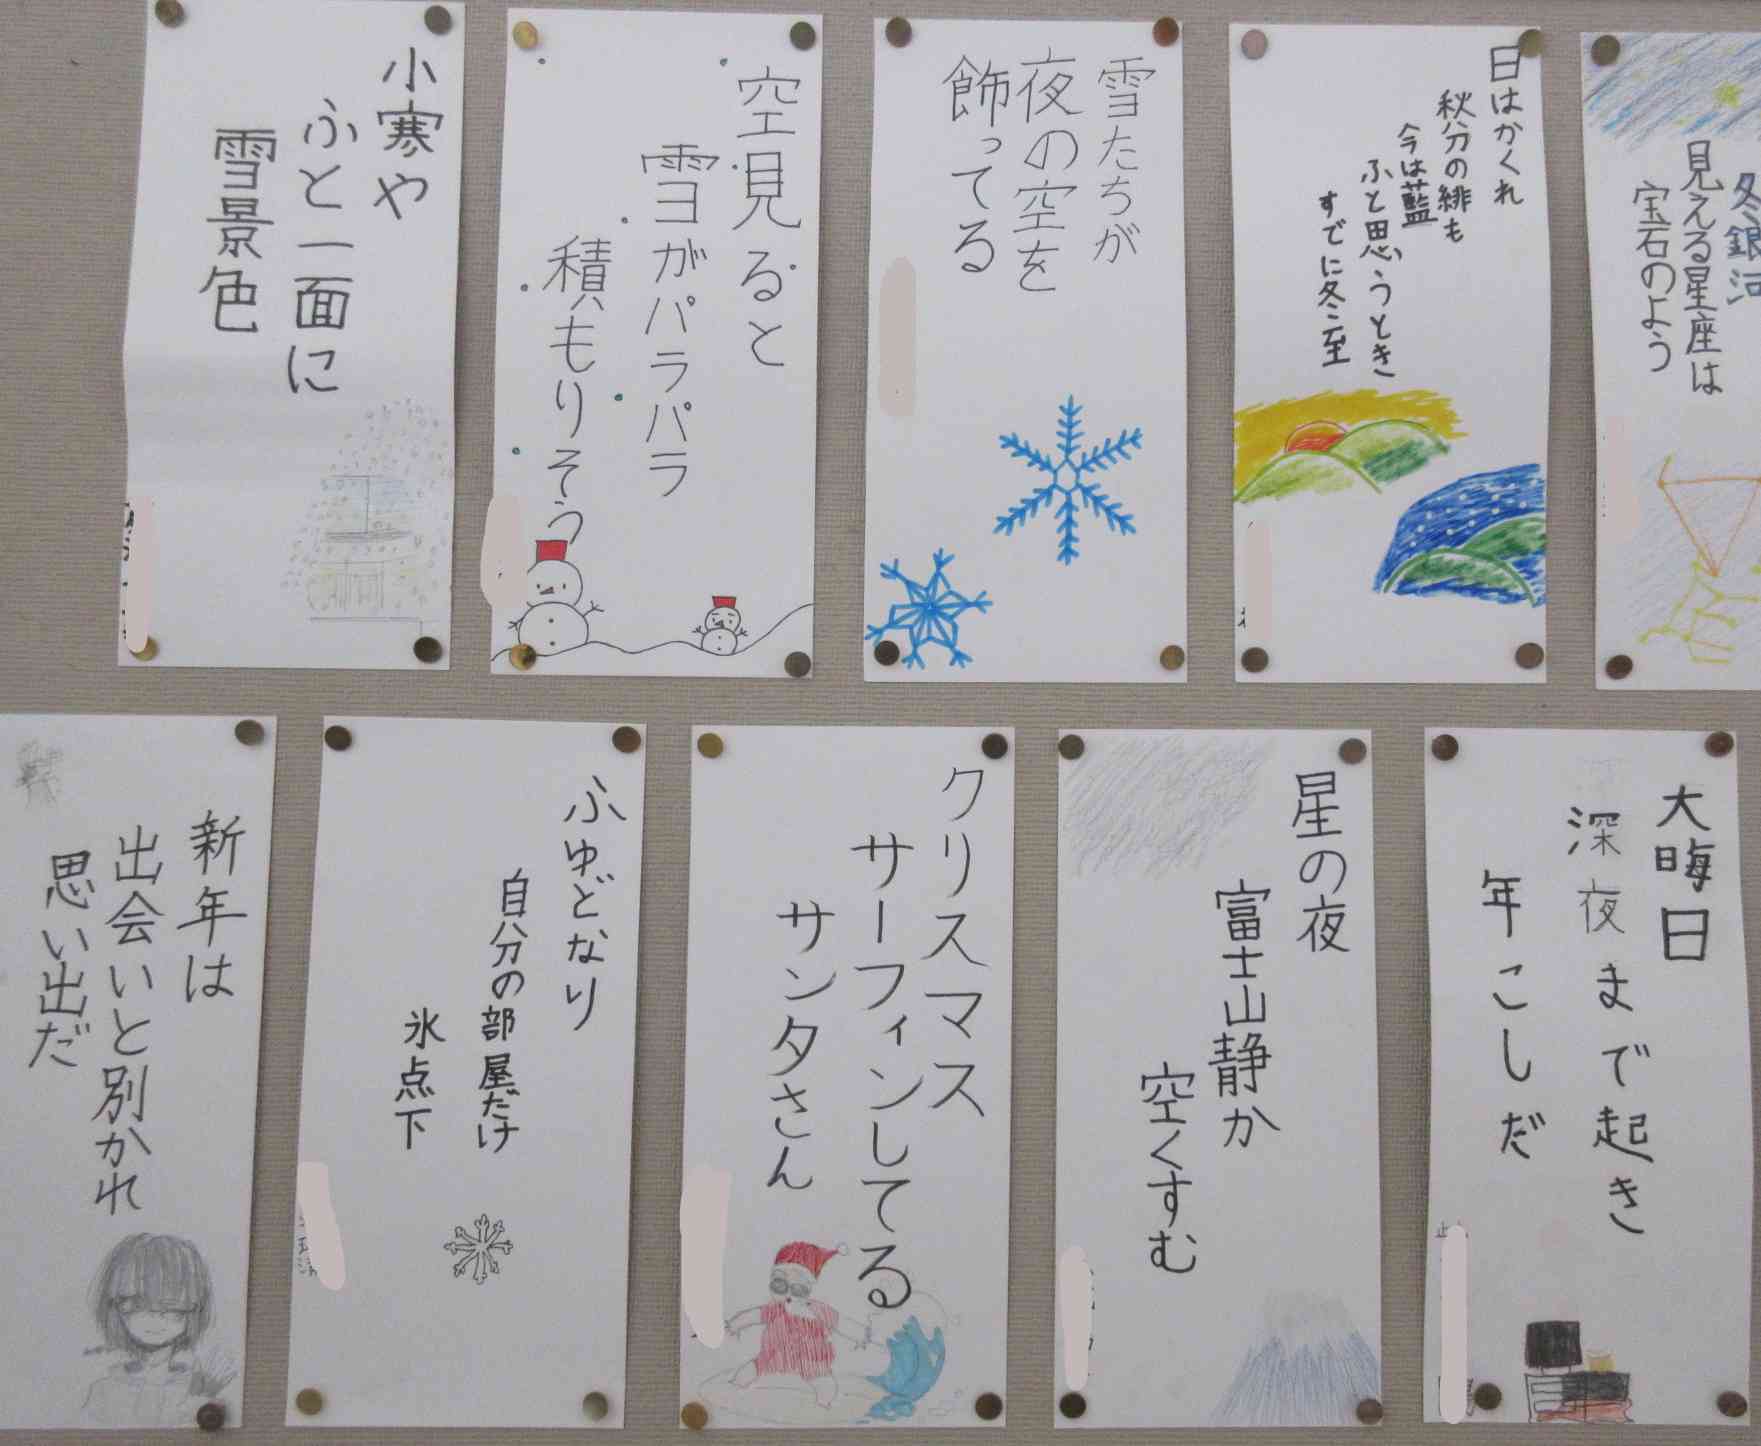 小寒や
ふと一面に
雪景色
空見ると
雪がパラパラ
積もりそう
雪たちが
夜の空を
飾ってる
日はかくれ
秋分の緋も
今は藍
ふと思うとき
すでに冬至
冬銀河
見える星座は
宝石のよう
新年は
出会いと別かれ
思い出だ
ふゆどなり
自分の部屋だけ
氷点下
クリスマス
サーフィンしてる
サンタさん
星の夜
富士山静か
空くすむ
大晦日
深夜まで起き
年こしだ